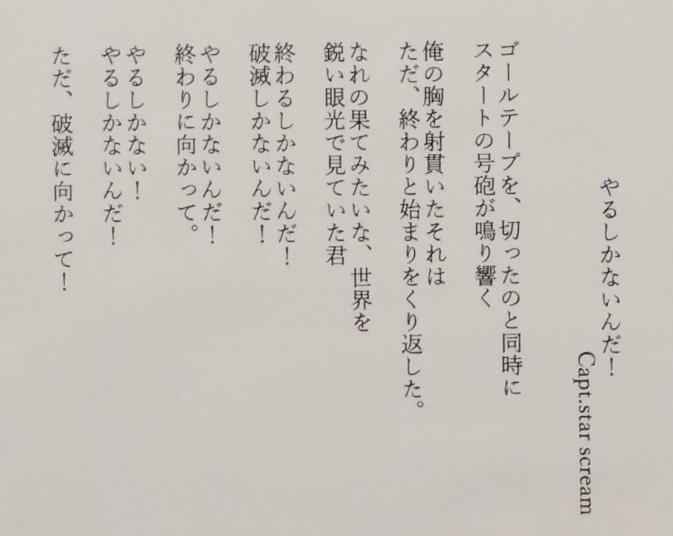 やるしかないんだ！
Capt.star scream
ゴールテープを、切ったのと同時に
スタートの号砲が鳴り響く
俺の胸を射貫いたそれは
ただ、終わりと始まりをくり返した。
なれの果てみたいな、世界を
鋭い眼光で見ていた君
終わるしかないんだ！
破滅しかないんだ！
やるしかないんだ！
終わりに向かって。
やるしかない！
やるしかないんだ！
ただ、破滅に向かって！